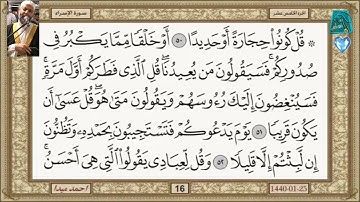 الجزء الخامس عشر
سورة الإسراء
۞ قُلْ كُونُوا۟ حِجَارَةً أَوْ حَدِيدًا ٥٠ أَوْ خَلْقًا مِّمَّا يَكْبُرُ فِى
صُدُورِكُمْ ۚ فَسَيَقُولُونَ مَن يُعِيدُنَا ۖ قُلِ ٱلَّذِى فَطَرَكُمْ أَوَّلَ مَرَّةٍ ۚ
فَسَيُنْغِضُونَ إِلَيْكَ رُءُوسَهُمْ وَيَقُولُونَ مَتَىٰ هُوَ ۖ قُلْ عَسَىٰٓ أَن
يَكُونَ قَرِيبًا ٥١ يَوْمَ يَدْعُوكُمْ فَتَسْتَجِيبُونَ بِحَمْدِهِۦ وَتَظُنُّونَ
إِن لَّبِثْتُمْ إِلَّا قَلِيلًا ٥٢ وَقُل لِّعِبَادِى يَقُولُوا۟ ٱلَّتِى هِىَ أَحْسَنُ ۚ
1440-01-25
16